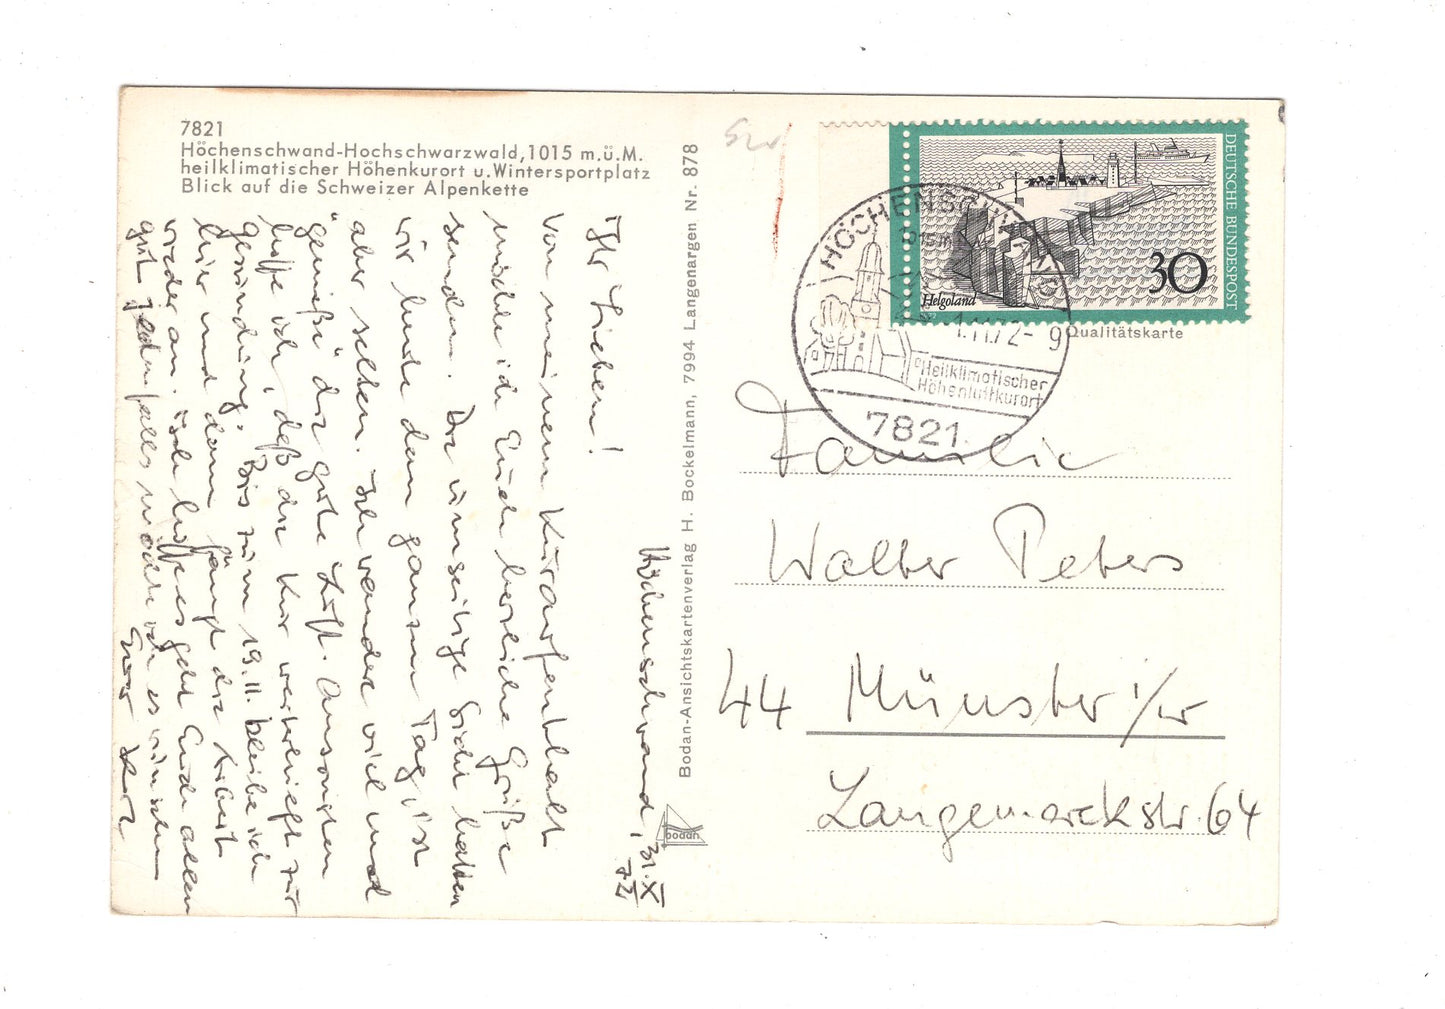 7821
Höchenschwand-Hochschwarzwald, 1015 m.ü.M.
heilklimatischer Höhenkurort u. Wintersportplatz
Blick auf die Schweizer Alpenkette
Höchenschwand, 31.X
72
Ihr Lieben!
Von meinem Kuraufenthalt
möchte ich Euch herzliche Grüße
senden. Die umseitige Sicht hatten
wir heute den ganzen Tag, ist
aber selten. Ich wandere viel und
"genieße" die gute Luft. Ansonsten
hoffe ich, daß die Kur verhilft zur
Gesundung. Bis zum 19.11. bleibe ich
hier und dann fängt die Arbeit
wieder an. Ich hoffe es geht Euch allen
gut jedenfalls möchte ich es wünschen
Euer
Bodan-Ansichtskartenverlag H. Bockelmann, 7994 Langenargen Nr. 878
bodan
DEUTSCHE BUNDESPOST
30
Helgoland
HÖCHENSCHWAND
1015 m
-1.11.72-9
Heilklimatischer
Höhenluftkurort
7821
Qualitätskarte
Familie
Walter Peters
44 Münster i/W
Langemarckstr. 64